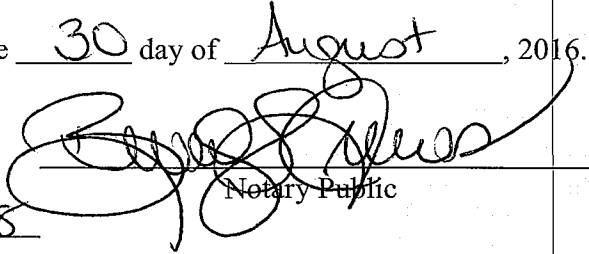 e 30 day of August, 2016.
Notary Public
8